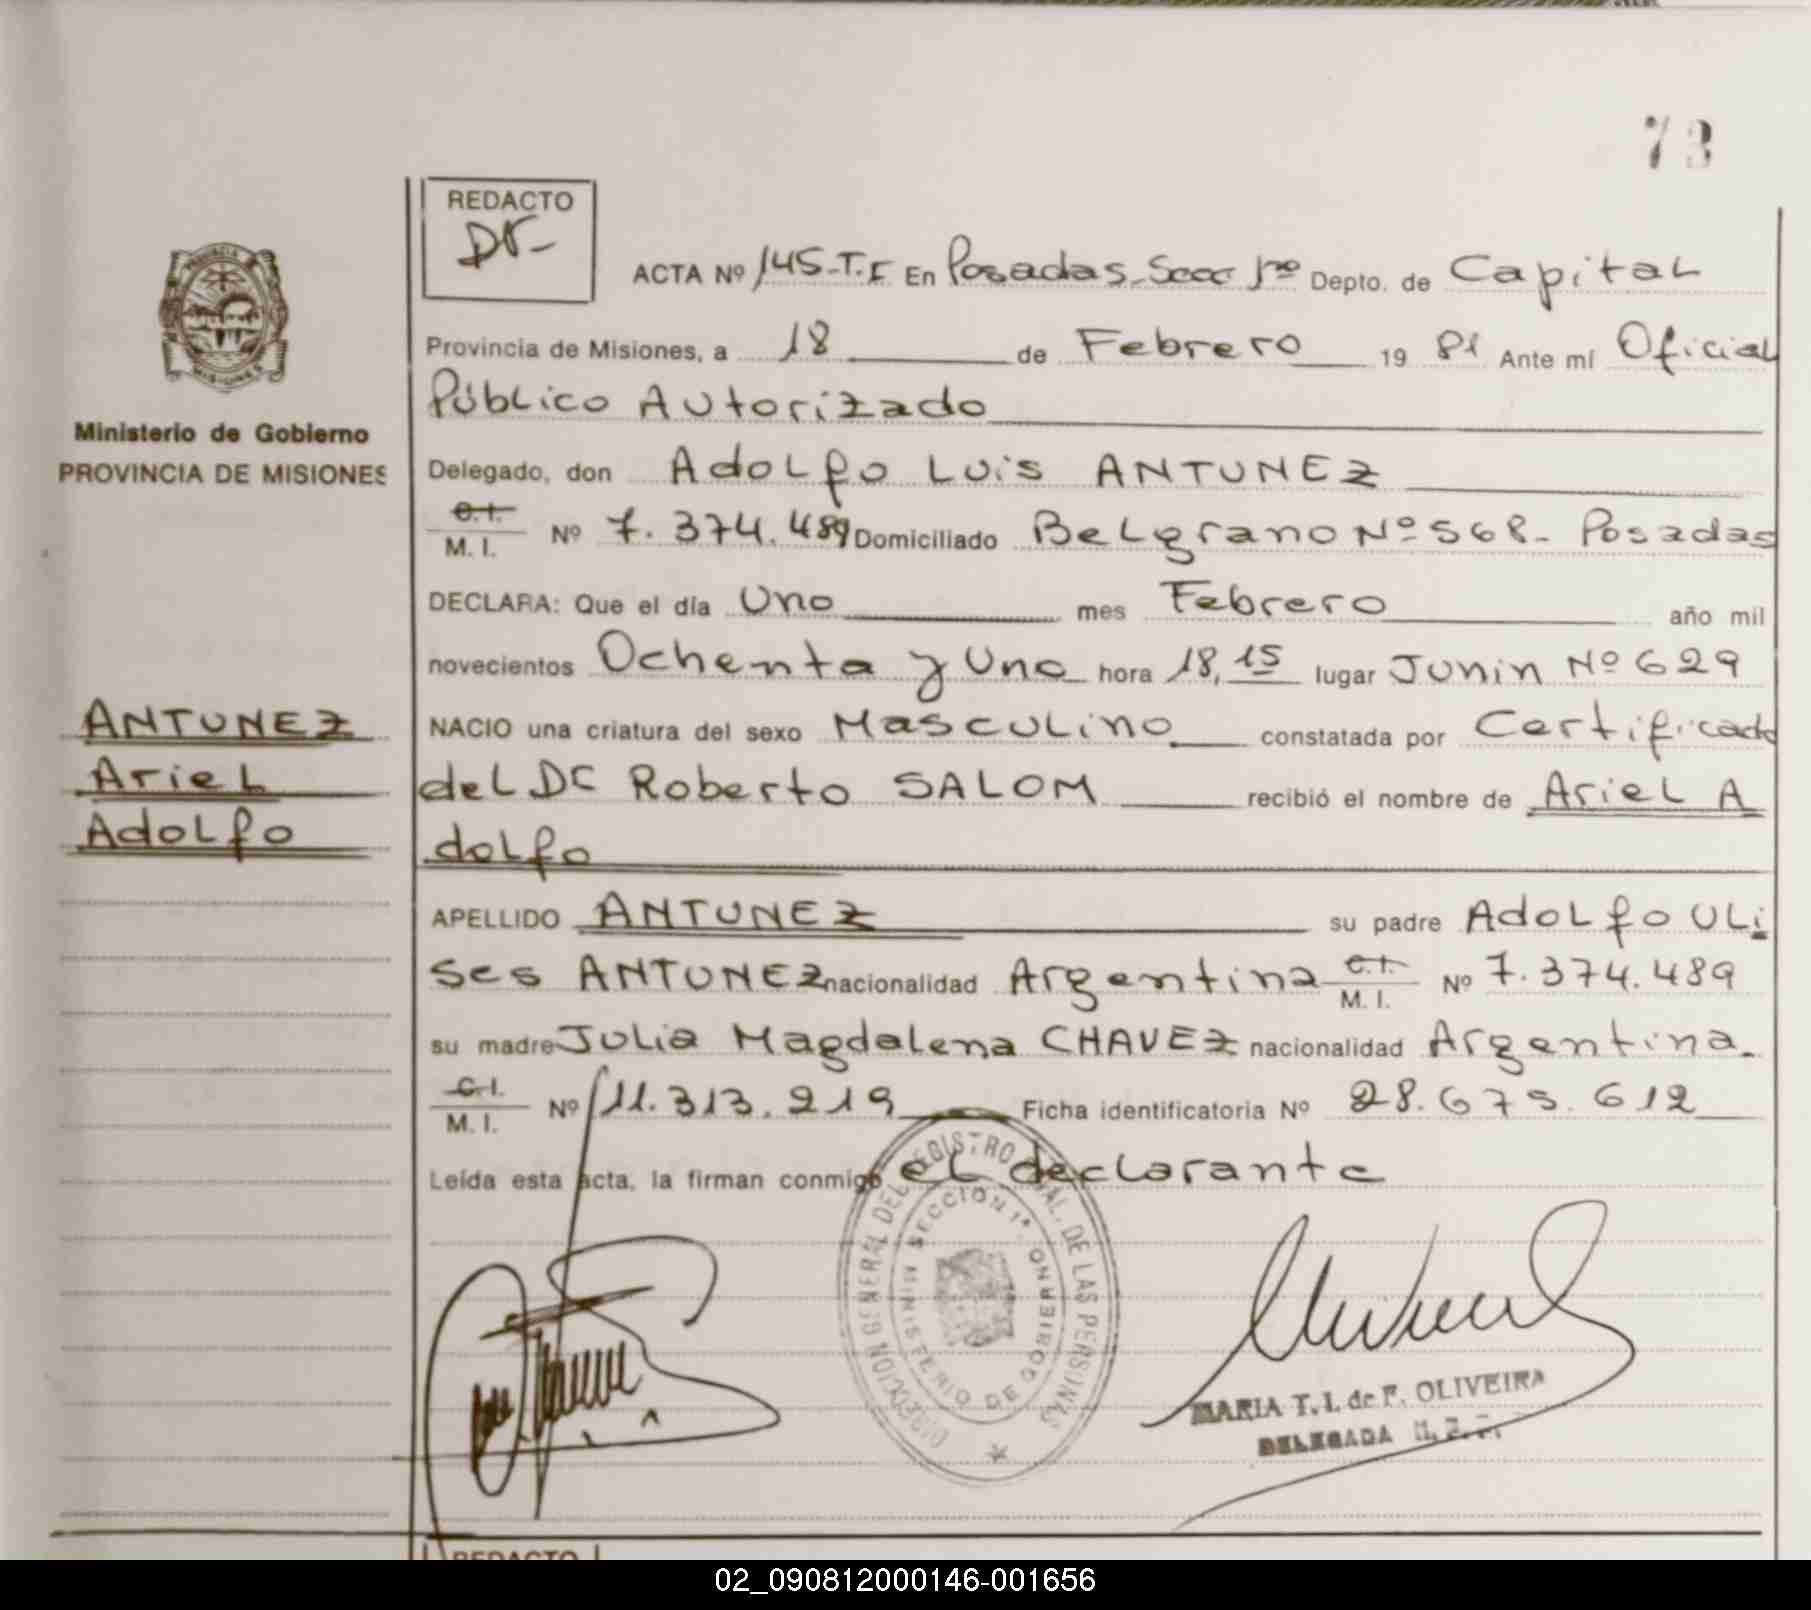 73
REDACTO
Dr-
ACTA Nº 145-T.I En Posadas-Secc 1ra Depto. de Capital
Provincia de Misiones, a 18 de Febrero 19 81 Ante mí Oficial
Público Autorizado
Delegado, don Adolfo Luis ANTUNEZ
C.I.
M. I. Nº 7.374.489 Domiciliado Belgrano Nº 568- Posadas
DECLARA: Que el día Uno mes Febrero año mil
novecientos Ochenta y Uno hora 18,15 lugar Junin Nº 629
NACIO una criatura del sexo Masculino constatada por Certificado
del Dr Roberto SALOM recibió el nombre de Ariel A
dolfo
APELLIDO ANTUNEZ su padre Adolfo Uli
ses ANTUNEZ nacionalidad Argentina C.I. M. I. Nº 7.374.489
su madre Julia Magdalena CHAVEZ nacionalidad Argentina.
C.I.
M. I. Nº 11.313.219 Ficha identificatoria Nº 28.675.612
Leída esta acta, la firman conmigo el declarante
PROVINCIA DE
MISIONES
Ministerio de Gobierno
PROVINCIA DE MISIONES
ANTUNEZ
Ariel
Adolfo
DIRECCION GENERAL DEL REGISTRO PCIAL. DE LAS PERSONAS
SECCION 1ª
MINISTERIO DE GOBIERNO
MARIA T. I. de F. OLIVEIRA
DELEGADA
REDACTO
02_090812000146-001656